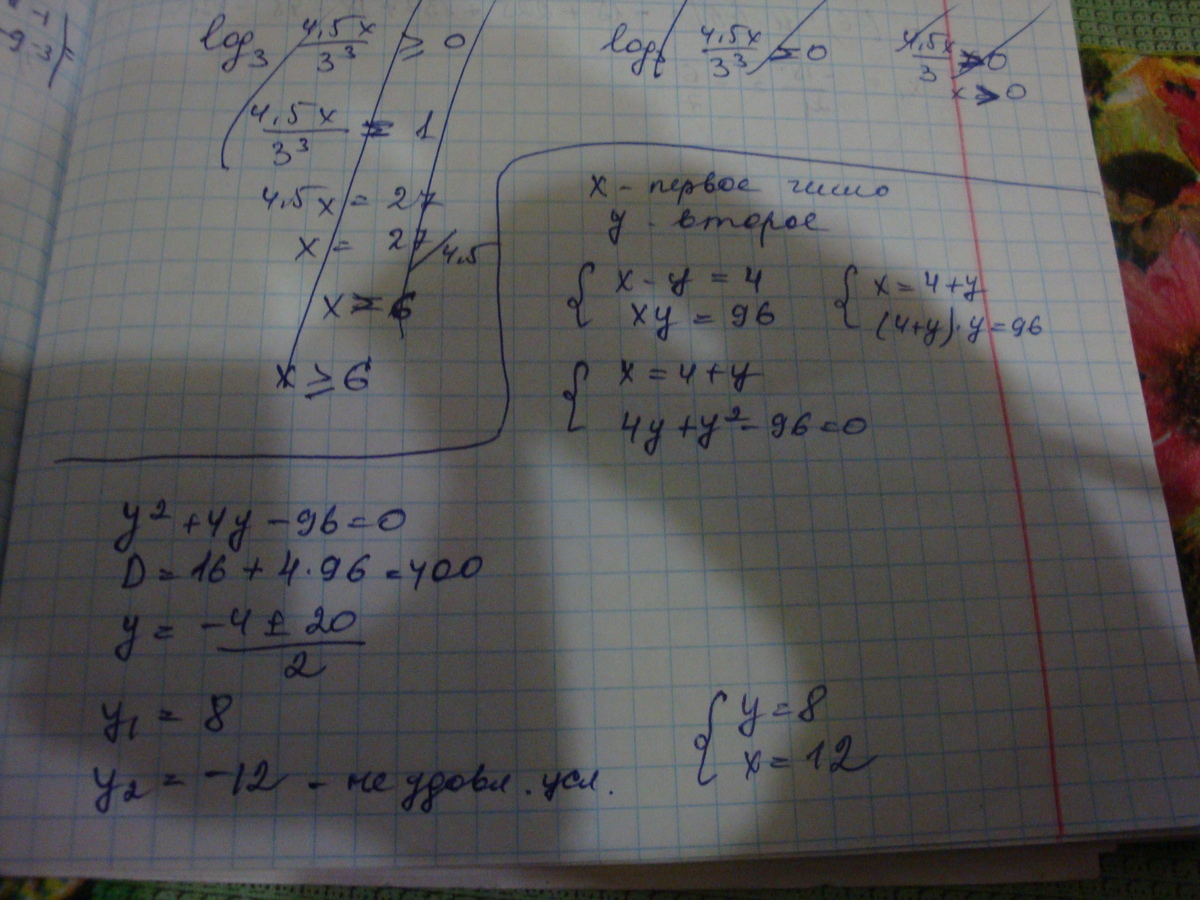 log₃ 4,5x/3³ ≥ 0
4,5x/3³ = 1
4,5x = 27
x = 27/4,5
x ≥ 6
x ≥ 6
4,5x/3³ = 0
4,5x/3 > 0
x > 0
x - первое число
y - второе
{ x - y = 4
xy = 96
{ x = 4+y
(4+y)·y = 96
{ x = 4+y
4y + y² - 96 = 0
y² + 4y - 96 = 0
D = 16 + 4·96 = 400
y = (-4 ± 20)/2
y₁ = 8
y₂ = -12 - не удовл. усл.
{ y = 8
x = 12